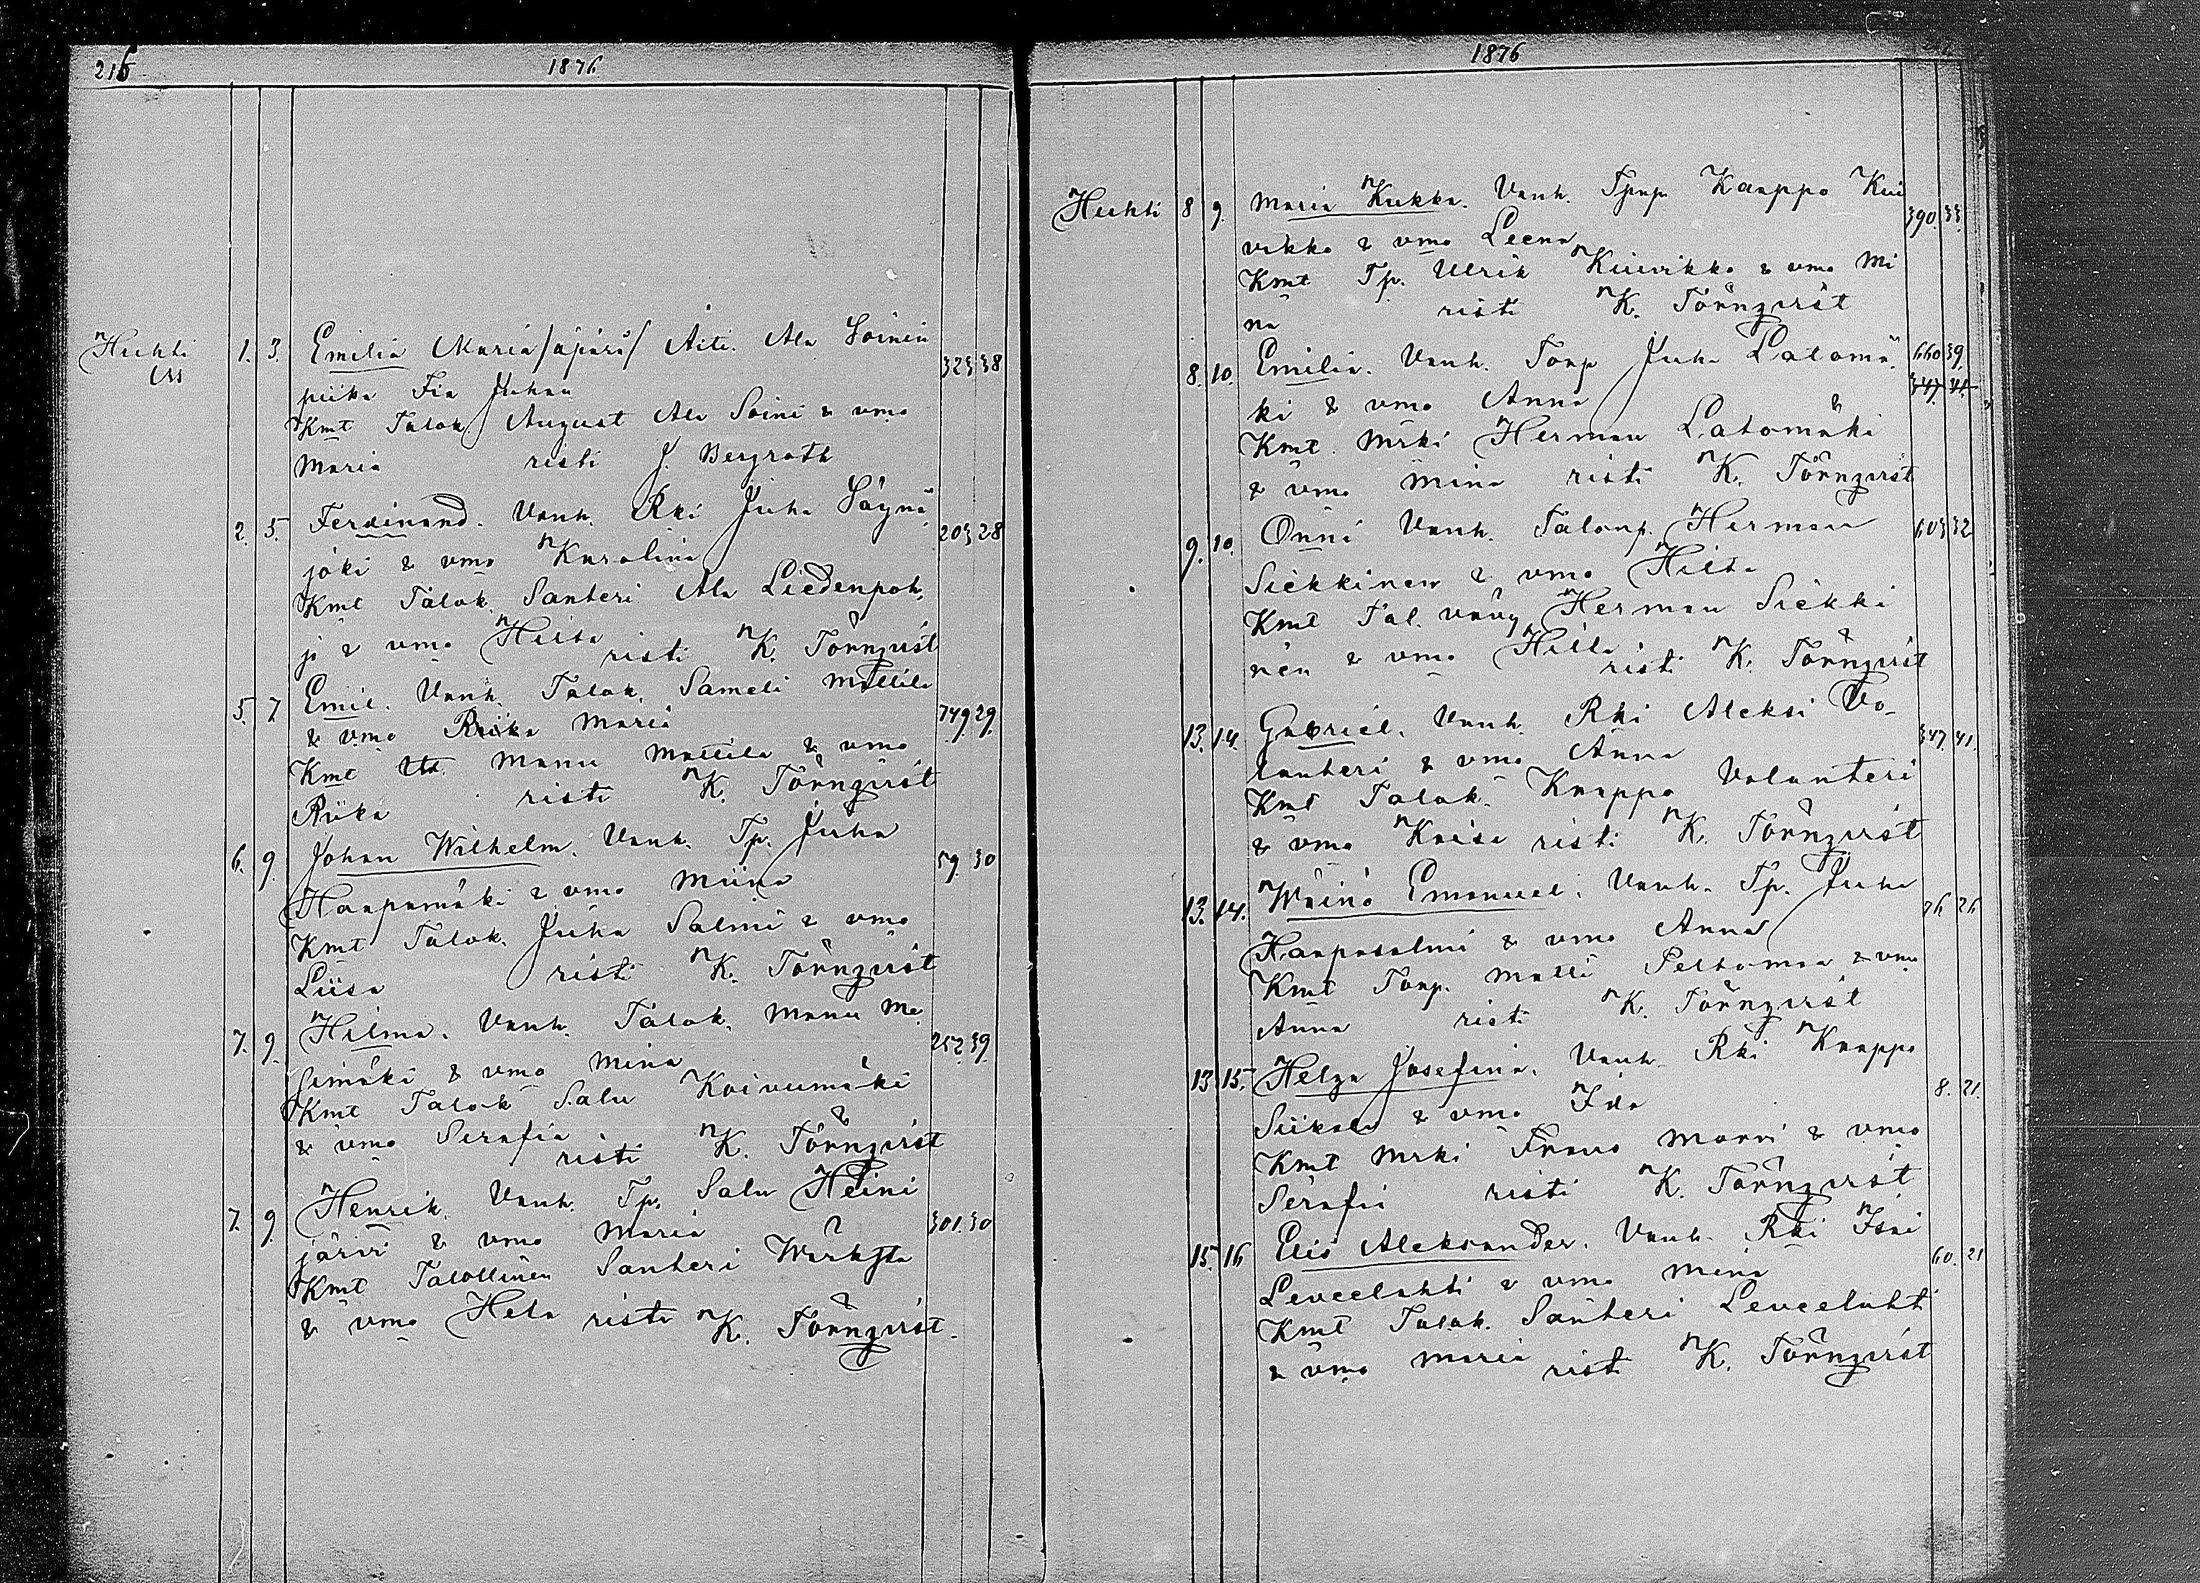 216 1876
Huhti 1. 3. Emilia Maria /äpärä/ Äiti. Ala Soinin 323 38
kss
piika Fia Juhan
Kmt Talok. August Ala Soini & vmo
Maria risti J. Bergroth
2. 5. Ferdinand. Vanh. Rki Juha Säynä 203 28
joki & vmo Karolina
Kmt Talok. Santeri Ala Liedenpoh,
ja & vmo Hiita risti K. Törnqvist
5. 7 Emil. Vanh. Talok. Sameli Mattila 749 29.
& vmo Riika Maria
Kmt Manu Mattila & vmo
Riika risti K. Törnqvist
6. 9. Johan Wilhelm. Vanh. Tp. Juha 59. 30
Haapamäki & vmo Miina
Kmt Talok. Juha Salmi & vmo
Liisa risti K. Törnqvist
7. 9. Hilma. Vanh. Talok. Manu Me 252 39.
simäki & vmo Mina
Kmt Talok Salu Koivumäki
& vmo Serafia risti K. Törnqvist
7. 9. Henrik. Vanh. Tp. Salu Heini 301. 30
järvi & vmo Maria
Kmt Talollinen Santeri
& vmo Heta risti K. Törnqvist.
1876
Huhti 8 9. Maria Kukka. Vanh. Tpnp Kaappo Kui 390. 33.
vikko & vmo Leena
Kmt Tp. Ulrik Kuivikko & vmo Mi
na risti K. Törnqvist
8. 10. Emilia. Vanh. Torp Juha Latomä 660 39.
347. 41.
ki & vmo Anna
Kmt. Mrki Herman Latomäki
& vmo Mina risti K. Törnqvist
9. 10. Onni Vanh. Talonp. Herman 603 32
Siekkinen & vmo Hilta
Kmt Tal. vävy Herman Siekki
nen & vmo risti K. Törnqvist
13. 14. Gabriel. Vanh. Rki Aleksi Vo- 347. 41.
lanteri & vmo Anna
Kmt Talok. Kaappo Volanteri
& vmo Kaisa risti K. Törnqvist
13. 14. Wäinö Emanuel. Vanh. Tp. Juha 76 26
Haapasalmi & vmo Anna
Kmt Torp. Matti Peltomaa & vmo
Anna risti K. Törnqvist
13 15. Helga Josefina. Vanh. Rki Kaappo 8. 21.
Siikala & vmo Ida
Kmt Mrki Frans & vmo
Serafia risti K. Törnqvist
15. 16 Elis Aleksander. Vanh. Rki Isai 60. 21
Leveelahti & vmo Mina
Kmt Talok. Santeri Leveelahti
& vmo Maria risti K. Törnqvist